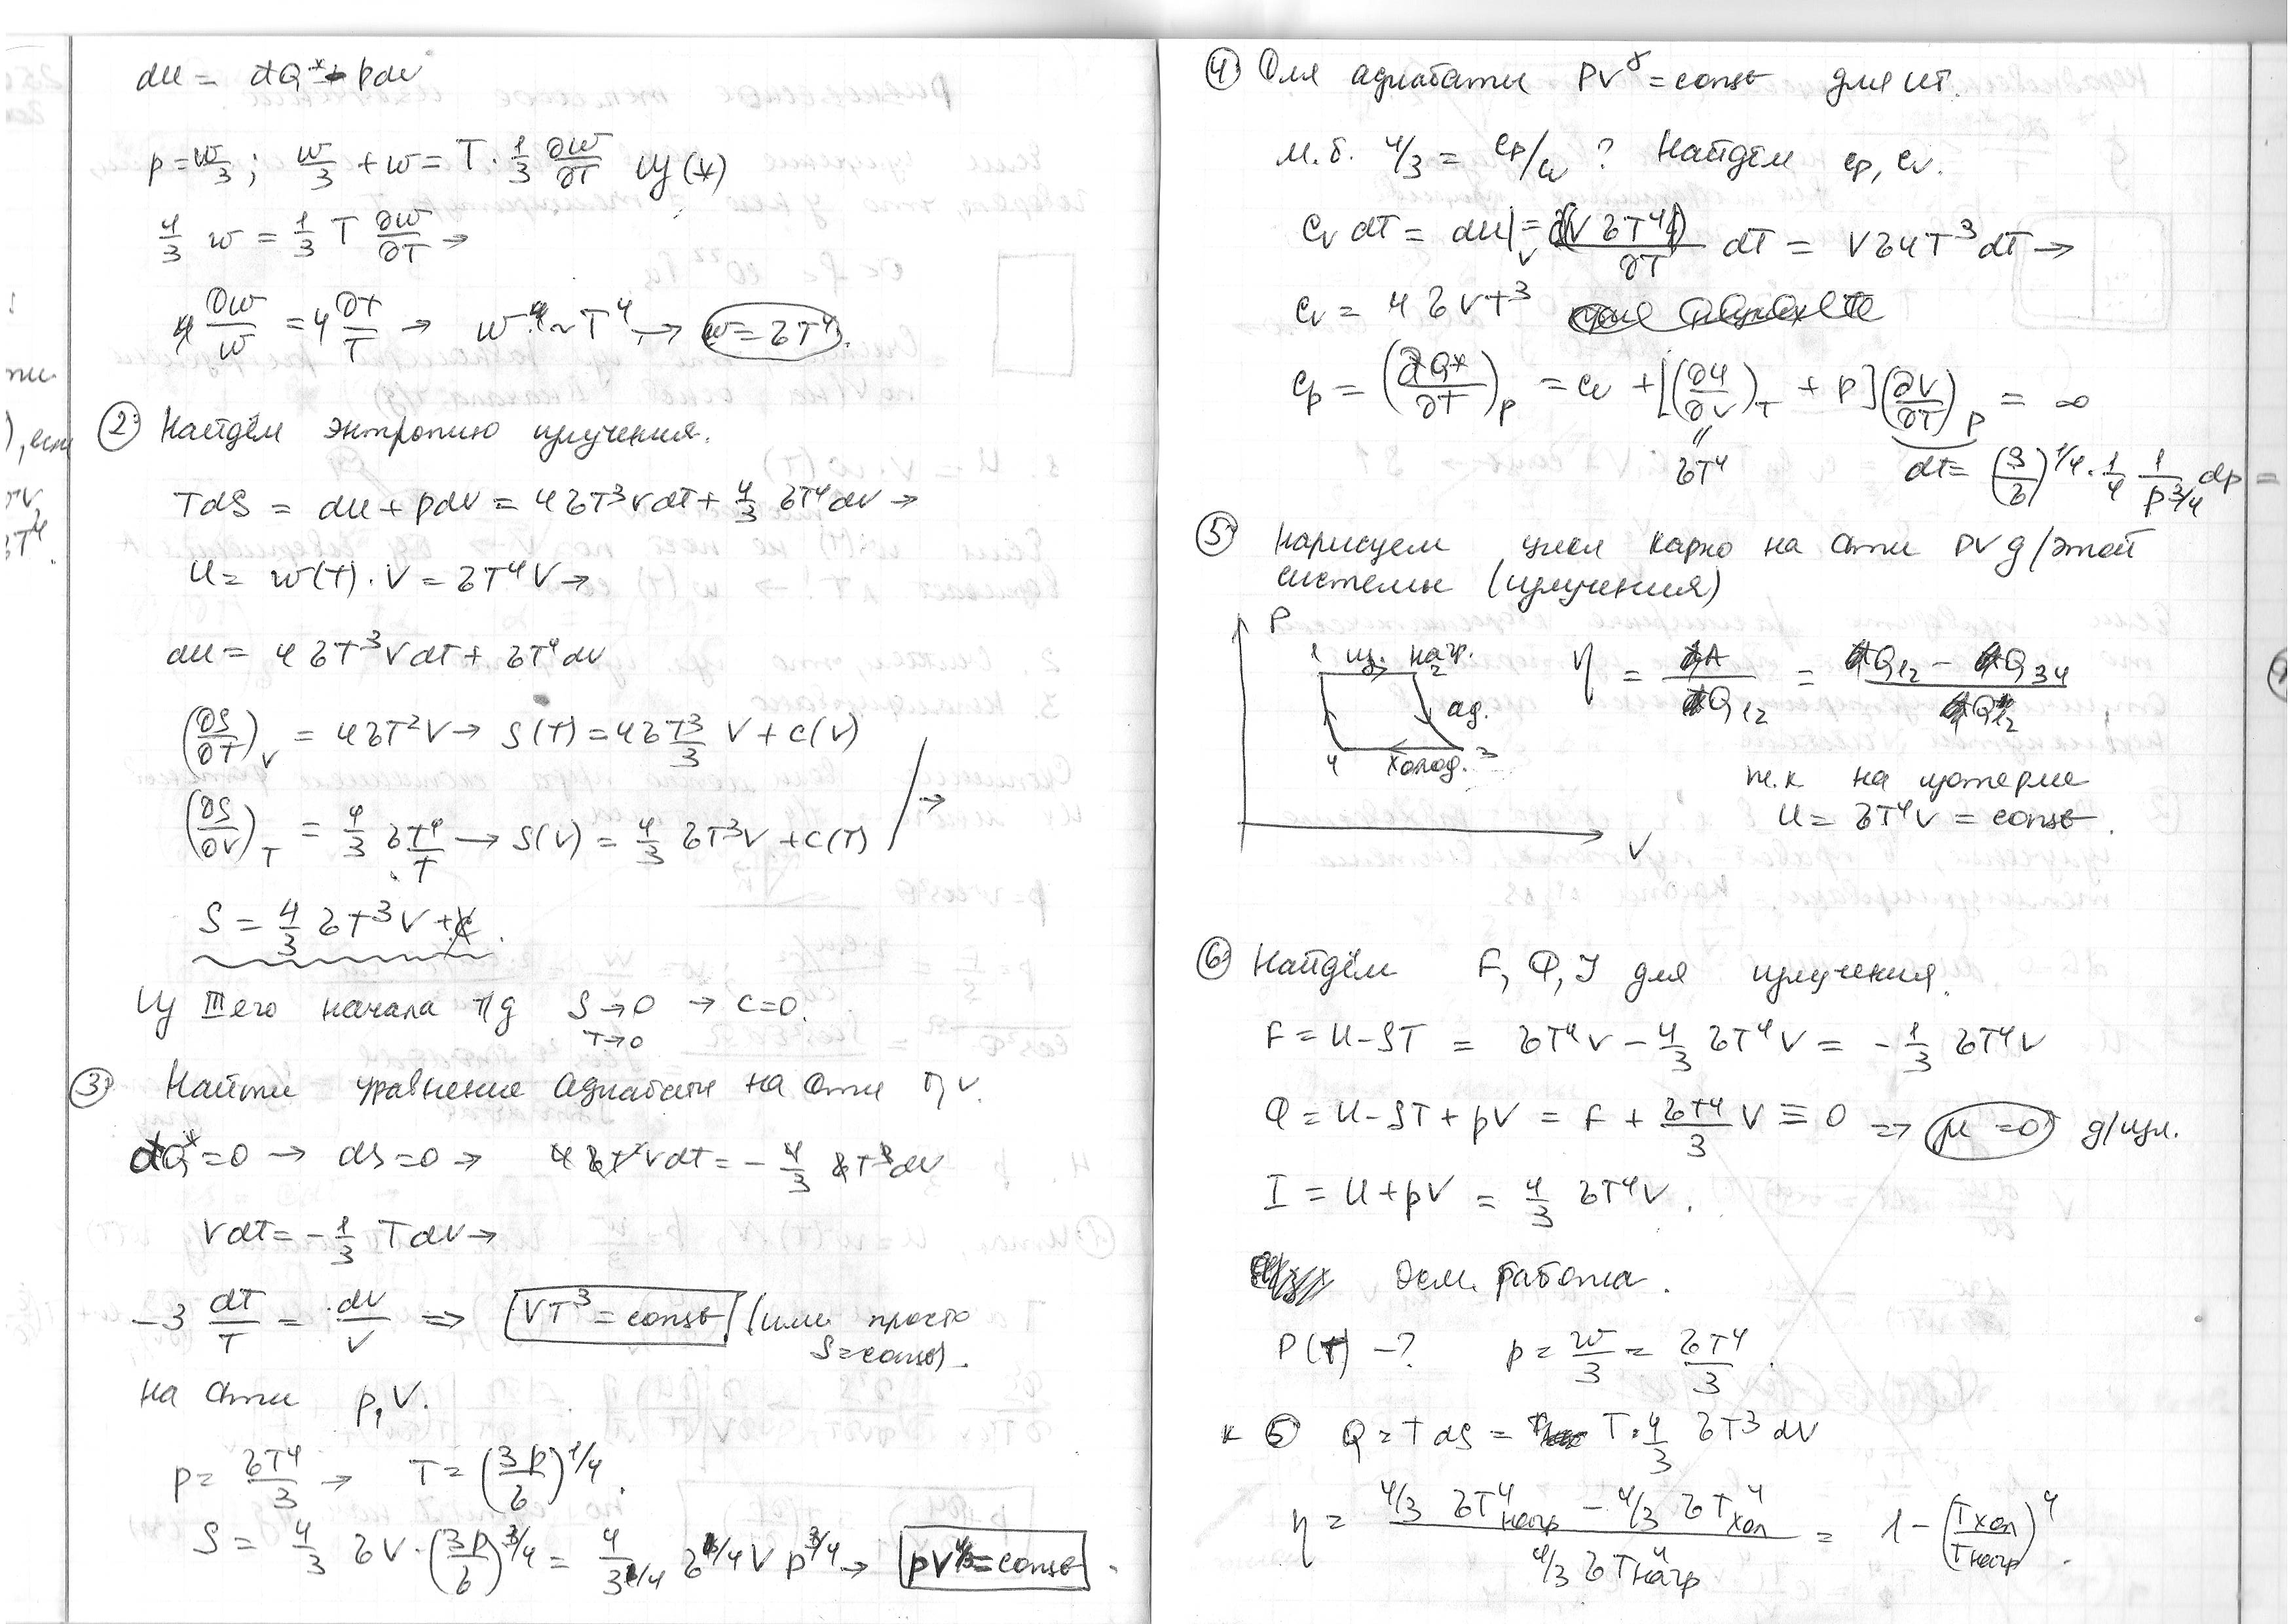 dU = đQ* - pdV
p = w/3; w/3 + w = T · 1/3 ∂w/∂T из (*)
4/3 w = 1/3 T ∂w/∂T →
∂w/w = 4 ∂T/T → w ~ T⁴ → w = бT⁴.
② Найдём энтропию излучения.
TdS = dU + pdV = 4бT³VdT + 4/3 бT⁴dV →
U = w(T) · V = бT⁴V →
dU = 4бT³VdT + бT⁴dV
(∂S/∂T)_V = 4бT²V → S(T) = 4б T³/3 V + C(V)
(∂S/∂V)_T = 4/3 б T⁴/T → S(V) = 4/3 бT³V + C(T) →
S = 4/3 бT³V
Из III его начала т/д S → 0 T→0 → C = 0.
③ Найти уравнение адиабаты на сти T, V.
đQ* = 0 → dS = 0 → 4бT²VdT = - 4/3 бT³dV
VdT = - 1/3 TdV →
-3 dT/T = dV/V ⇒ VT³ = const (или просто
S = const).
на сти p, V.
p = бT⁴/3 → T = (3p/б)^1/4.
S = 4/3 бV · (3p/б)^3/4 = 4/3^1/4 б^1/4 V p^3/4 → pV^4/3 = const.
④ Для адиабаты PV^γ = const для ИГ.
М.б. 4/3 = Cp/Cv ? Найдём Cp, Cv.
Cv dT = dU|_V = ∂(VбT⁴)/∂T dT = Vб4T³dT →
Cv = 4бVT³
Cp = (đQ*/∂T)_p = Cv + [(∂U/∂V)_T + p](∂V/∂T)_p = ∞
бT⁴
dT = (3/б)^1/4 · 1/4 1/p^3/4 dp =
⑤ Нарисуем цикл Карно на сти PV д/этой
системы (излучения)
P
1 из. нагр. 2
ад.
4 холод. 3
V
η = A/Q₁₂ = (Q₁₂ - Q₃₄)/Q₁₂
т.к на изотерме
U = бT⁴V = const.
⑥ Найдём F, Ф, I для излучения.
F = U - ST = бT⁴V - 4/3 бT⁴V = - 1/3 бT⁴V
Ф = U - ST + pV = F + бT⁴/3 V ≡ 0 ⇒ μ = 0 д/изл.
I = U + pV = 4/3 бT⁴V.
работа.
P(T) - ? p = w/3 = бT⁴/3.
к ⑤ Q = TdS = T · 4/3 бT³dV
η = (4/3 бT⁴нагр - 4/3 бT⁴хол)/(4/3 бT⁴нагр) = 1 - (Tхол/Tнагр)⁴.